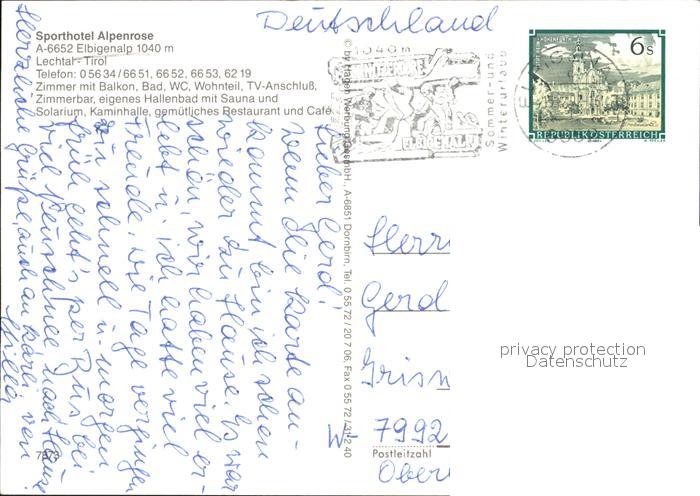 Deutschland
Sporthotel Alpenrose
A-6652 Elbigenalp 1040 m
Lechtal - Tirol
Telefon: 0 56 34 / 66 51, 66 52, 66 53, 62 19
Zimmer mit Balkon, Bad, WC, Wohnteil, TV-Anschluß,
Zimmerbar, eigenes Hallenbad mit Sauna und
Solarium, Kaminhalle, gemütliches Restaurant und Café
Lieber Gerd!
Wenn die Karte an-
kommt bin ich schon
wieder zu Hause. Es war
schön, wir haben viel er-
lebt u. ich hatte viel
Freude. Die Tage vergingen
zu schnell u. morgen
früh geht's per Bus bei
viel Neuschnee nach Hause
Herzliche Grüße, auch an
von
7373
Werbung GesmbH., A-6851 Dornbirn, Tel. 0 55 72 / 20 7 06, Fax 0 55 72 / 31 2 40
1040m
ELBIGENALP
Sommer- und
Winterurlaub
6s
REPUBLIK ÖSTERREICH
Herrn
Gerd
W- 7992
Postleitzahl
Ober
privacy protection
Datenschutz